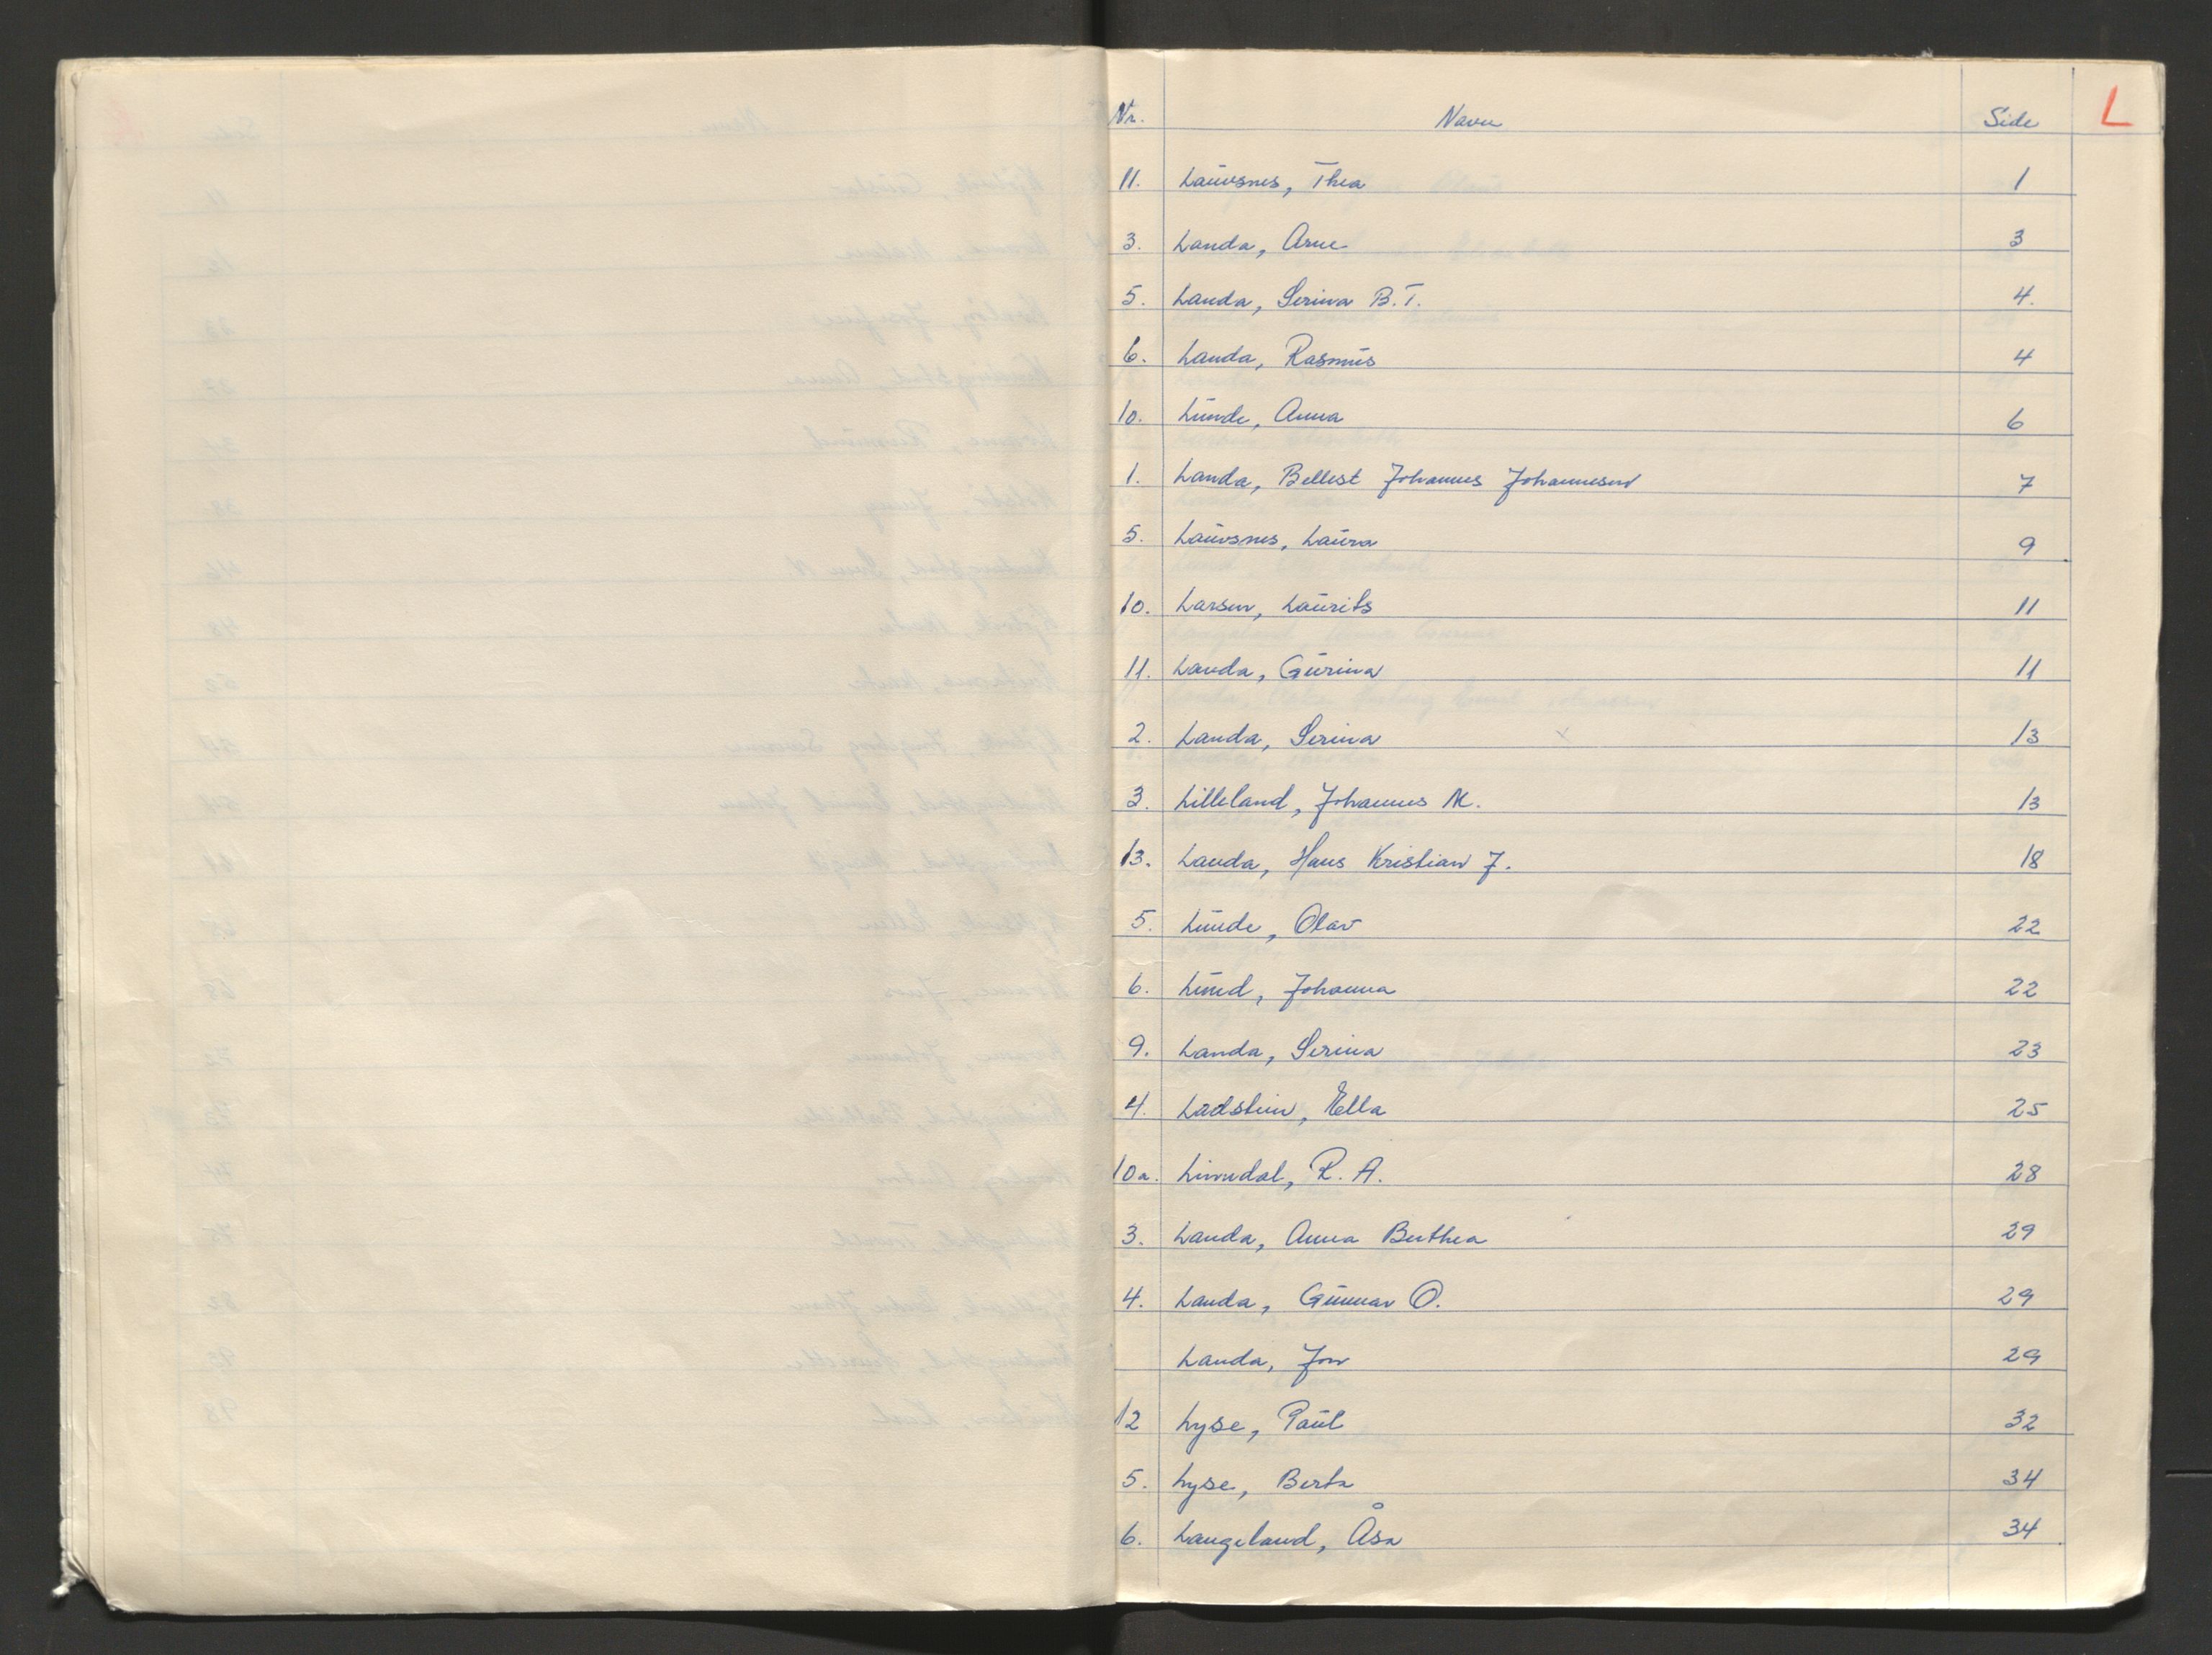 Nr. Navn Side L
11. Lauvsnes, Thea 1
3. Landa, Arne 3
5. Landa, Serina B.T. 4.
6. Landa, Rasmus 4
10. Lunde, Anna 6
1. Landa, Bellest Johannes Johannesen 7
5. Lauvsnes, Laura 9
10. Larsen, Laurits 11
11. Landa, Gurina 11
2. Landa, Serina 13
3. Lilleland, Johannes M. 13
13. Landa, Hans Kristian J. 18
5. Lunde, Olav 22
6. Lund, Johanna 22
9. Landa, Serina 23
4. Ladstein, Ella 25
10a. Linndal, R. A. 28
3. Landa, Anna Berthea 29
4. Landa, Gunnar O. 29
Landa, Jon 29
12 Lyse, Paul 32
5. Lyse, Berta 34
6. Langeland, Åsa 34